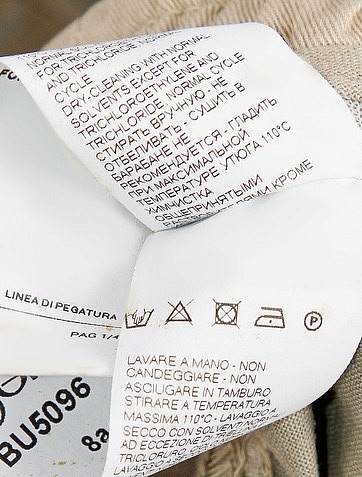 FOR TRICHLOROE
AND TRICHLORIDE NORMAL
CYCLE
DRY-CLEANING WITH NORMAL
SOLVENTS EXCEPT FOR
TRICHLOROETHYLENE AND
TRICHLORIDE, NORMAL CYCLE
СТИРАТЬ ВРУЧНУЮ - НЕ
ОТБЕЛИВАТЬ - СУШИТЬ В
БАРАБАНЕ НЕ
РЕКОМЕНДУЕТСЯ - ГЛАДИТЬ
ПРИ МАКСИМАЛЬНОЙ
ТЕМПЕРАТУРЕ УТЮГА 110°C
ХИМЧИСТКА
ОБЩЕПРИНЯТЫМИ
КРОМЕ
LINEA DI PEGATURA
PAG 1/4
P
LAVARE A MANO - NON
CANDEGGIARE - NON
ASCIUGARE IN TAMBURO
STIRARE A TEMPERATURA
MASSIMA 110°C - LAVAGGIO A
SECCO CON SOLVENTI NORMALI
AD ECCEZIONE DI
BU5096
8a